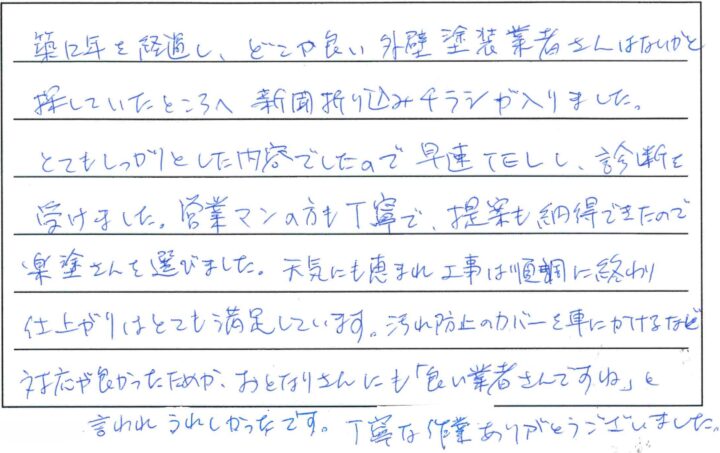 築12年を経過し、どこか良い外壁塗装業者さんはないかと
探していたところへ新聞折り込みチラシが入りました。
とてもしっかりとした内容でしたので早速TELし、診断を
受けました。営業マンの方も丁寧で、提案も納得できたので
楽塗さんを選びました。天気にも恵まれ工事は順調に終わり
仕上がりはとても満足しています。汚れ防止のカバーを車にかけるなど
対応が良かったためか、おとなりさんにも「良い業者さんですね」と
言われうれしかったです。丁寧な作業ありがとうございました。